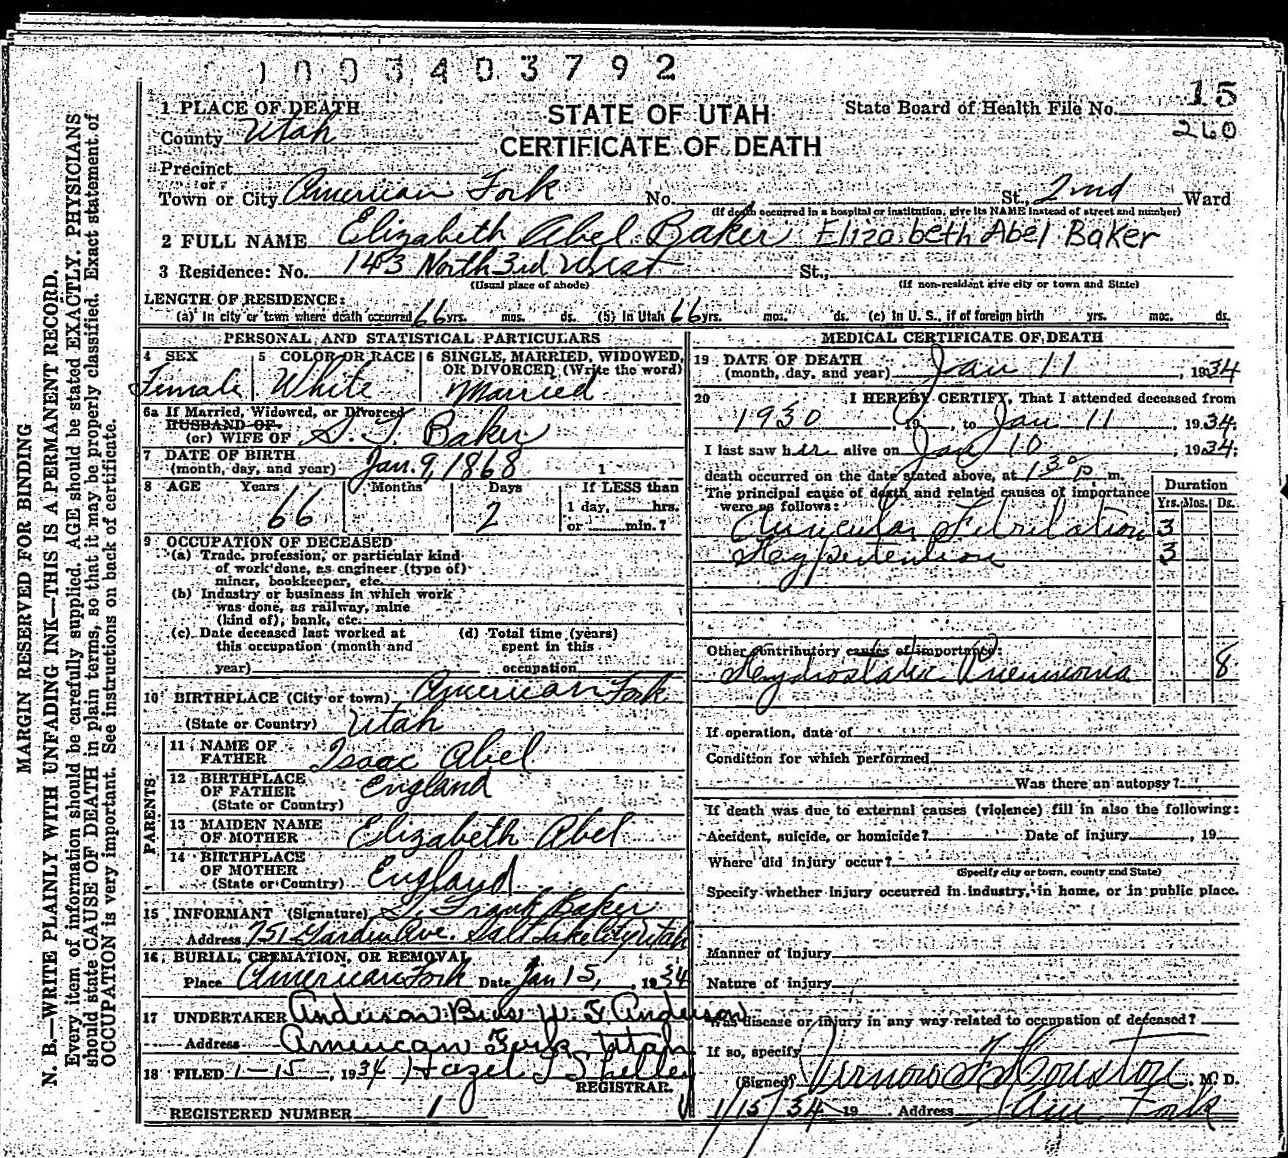 1003403792
15
1 PLACE OF DEATH
STATE OF UTAH
State Board of Health File No.
260
County Utah
CERTIFICATE OF DEATH
Precinct
or
Town or City American Fork No. St., 2nd Ward
(If death occurred in a hospital or institution, give its NAME instead of street and number)
2 FULL NAME Elizabeth Abel Baker Elizabeth Abel Baker
3 Residence: No. 143 North 3rd West St.,
(Usual place of abode) (If non-resident give city or town and State)
LENGTH OF RESIDENCE:
(a) In city or town where death occurred 66 yrs. mos. ds. (b) In Utah 66 yrs. mos. ds. (c) In U. S., if of foreign birth yrs. mos. ds.
PERSONAL AND STATISTICAL PARTICULARS
4 SEX 5 COLOR OR RACE 6 SINGLE, MARRIED, WIDOWED,
OR DIVORCED (Write the word)
Female White Married
6a If Married, Widowed, or Divorced
HUSBAND OF
(or) WIFE OF S. T. Baker
7 DATE OF BIRTH
(month, day, and year) Jan. 9, 1868
8 AGE Years Months Days If LESS than
1 day, hrs.
66 2 or min.?
9 OCCUPATION OF DECEASED
(a) Trade, profession, or particular kind
of work done, as engineer (type of)
miner, bookkeeper, etc.
(b) Industry or business in which work
was done, as railway, mine
(kind of), bank, etc.
(c) Date deceased last worked at (d) Total time (years)
this occupation (month and spent in this
year) occupation
10 BIRTHPLACE (City or town) American Fork
(State or Country) Utah
PARENTS
11 NAME OF
FATHER Isaac Abel
12 BIRTHPLACE
OF FATHER England
(State or Country)
13 MAIDEN NAME
OF MOTHER Elizabeth Abel
14 BIRTHPLACE
OF MOTHER England
(State or Country)
15 INFORMANT (Signature) S. Frank Baker
Address 751 Ave. Salt Lake City, Utah
16 BURIAL, CREMATION, OR REMOVAL
Place American Fork Date Jan 15, 1934
17 UNDERTAKER Anderson Bros W. S. Anderson
Address American Fork, Utah
18 FILED 1-15, 1934 Hazel J Shelley
REGISTRAR.
REGISTERED NUMBER 1
MEDICAL CERTIFICATE OF DEATH
19 DATE OF DEATH
(month, day, and year) Jan 11, 1934
20 I HEREBY CERTIFY, That I attended deceased from
1930, 19, to Jan 11, 1934.
I last saw her alive on Jan 10, 1934;
death occurred on the date stated above, at 1 30 p. m.
The principal cause of death and related causes of importance
were as follows:
Duration
Yrs. Mos. Ds.
Auricular Fibrilation 3
Hypertention 3
Other contributory causes of importance:
Hydrostatic Pneumonia 8
If operation, date of
Condition for which performed
Was there an autopsy?
If death was due to external causes (violence) fill in also the following:
Accident, suicide, or homicide? Date of injury, 19
Where did injury occur?
(Specify city or town, county and State)
Specify whether injury occurred in industry, in home, or in public place.
Manner of injury
Nature of injury
Was disease or injury in any way related to occupation of deceased?
If so, specify
(Signed) Vernon F. Houston, M. D.
1/15/34 19 Address Am. Fork
MARGIN RESERVED FOR BINDING
N. B.—WRITE PLAINLY WITH UNFADING INK—THIS IS A PERMANENT RECORD.
Every item of information should be carefully supplied. AGE should be stated EXACTLY. PHYSICIANS
should state CAUSE OF DEATH in plain terms, so that it may be properly classified. Exact statement of
OCCUPATION is very important. See instructions on back of certificate.